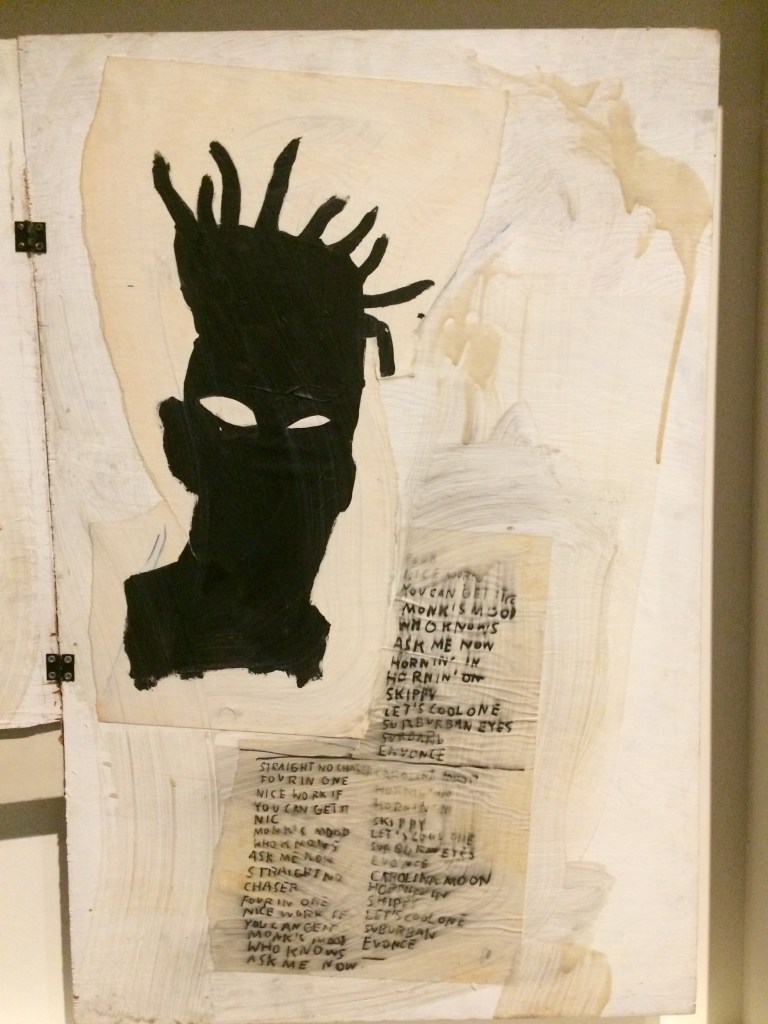 FOUR
NICE WORK
YOU CAN GET IT
MONK'S MOOD
WHO KNOWS
ASK ME NOW
HORNIN' IN
HORNIN' ON
SKIPPY
LET'S COOL ONE
SUBURBAN EYES
EVONCE
STRAIGHT NO CHASER
FOUR IN ONE
NICE WORK IF
YOU CAN GET IT
NIC
MONK'S MOOD
WHO KNOWS
ASK ME NOW
STRAIGHT NO
CHASER
FOUR IN ONE
NICE WORK IF
YOU CAN GET IT
MONK'S MOOD
WHO KNOWS
ASK ME NOW
CAROLINA MOON
HORNIN' IN
SKIPPY
LET'S COOL ONE
SUBURBAN EYES
EVONCE
CAROLINA MOON
HORNIN IN
SKIPPY
LET'S COOL ONE
SUBURBAN
EVONCE